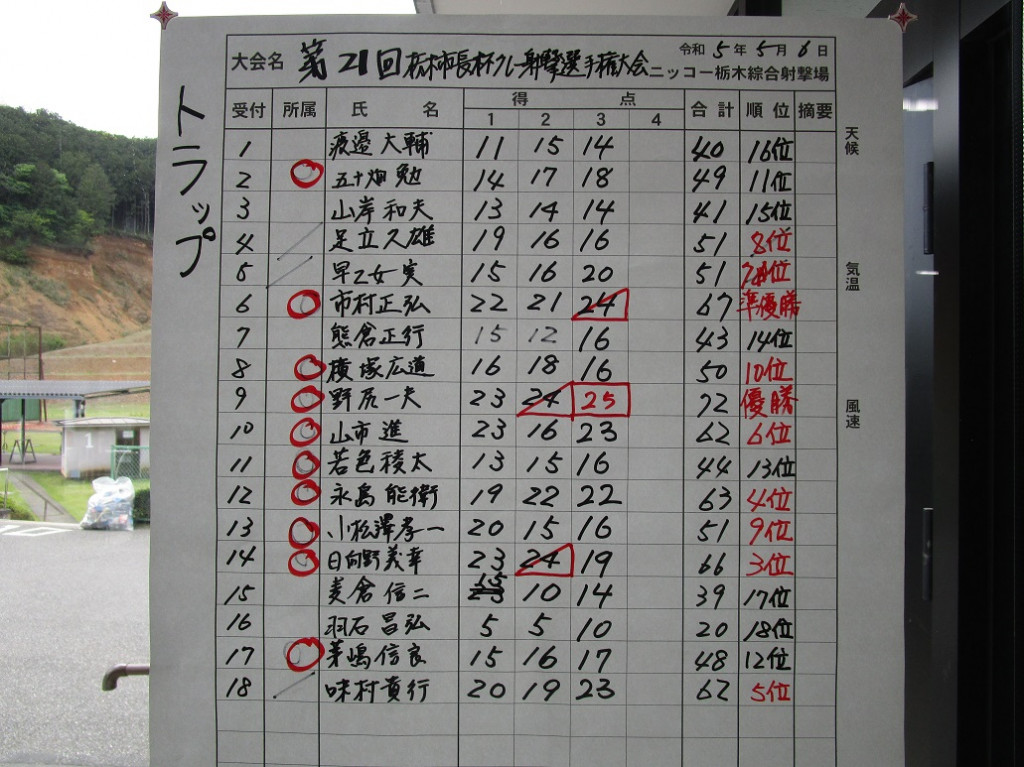 トラップ
大会名 第21回 栃木市長杯クレー射撃選手権大会 令和5年5月6日
ニッコー栃木綜合射撃場
受付 所属 氏名 得点 合計 順位 摘要
1 2 3 4
1 渡邉大輔 11 15 14 40 16位
2 五十畑勉 14 17 18 49 11位
3 山岸和夫 13 14 14 41 15位
4 足立久雄 19 16 16 51 8位
5 早乙女実 15 16 20 51 7位
6 市村正弘 22 21 24 67 準優勝
7 熊倉正行 15 12 16 43 14位
8 横塚広道 16 18 16 50 10位
9 野尻一夫 23 24 25 72 優勝
10 山市進 23 16 23 62 6位
11 若色稜太 13 15 16 44 13位
12 永島能衛 19 22 22 63 4位
13 小松澤孝一 20 15 16 51 9位
14 日向野義幸 23 24 19 66 3位
15 倉信二 15 10 14 39 17位
16 羽石昌弘 5 5 10 20 18位
17 茅嶋信良 15 16 17 48 12位
18 味村貴行 20 19 23 62 5位
天候
気温
風速
1